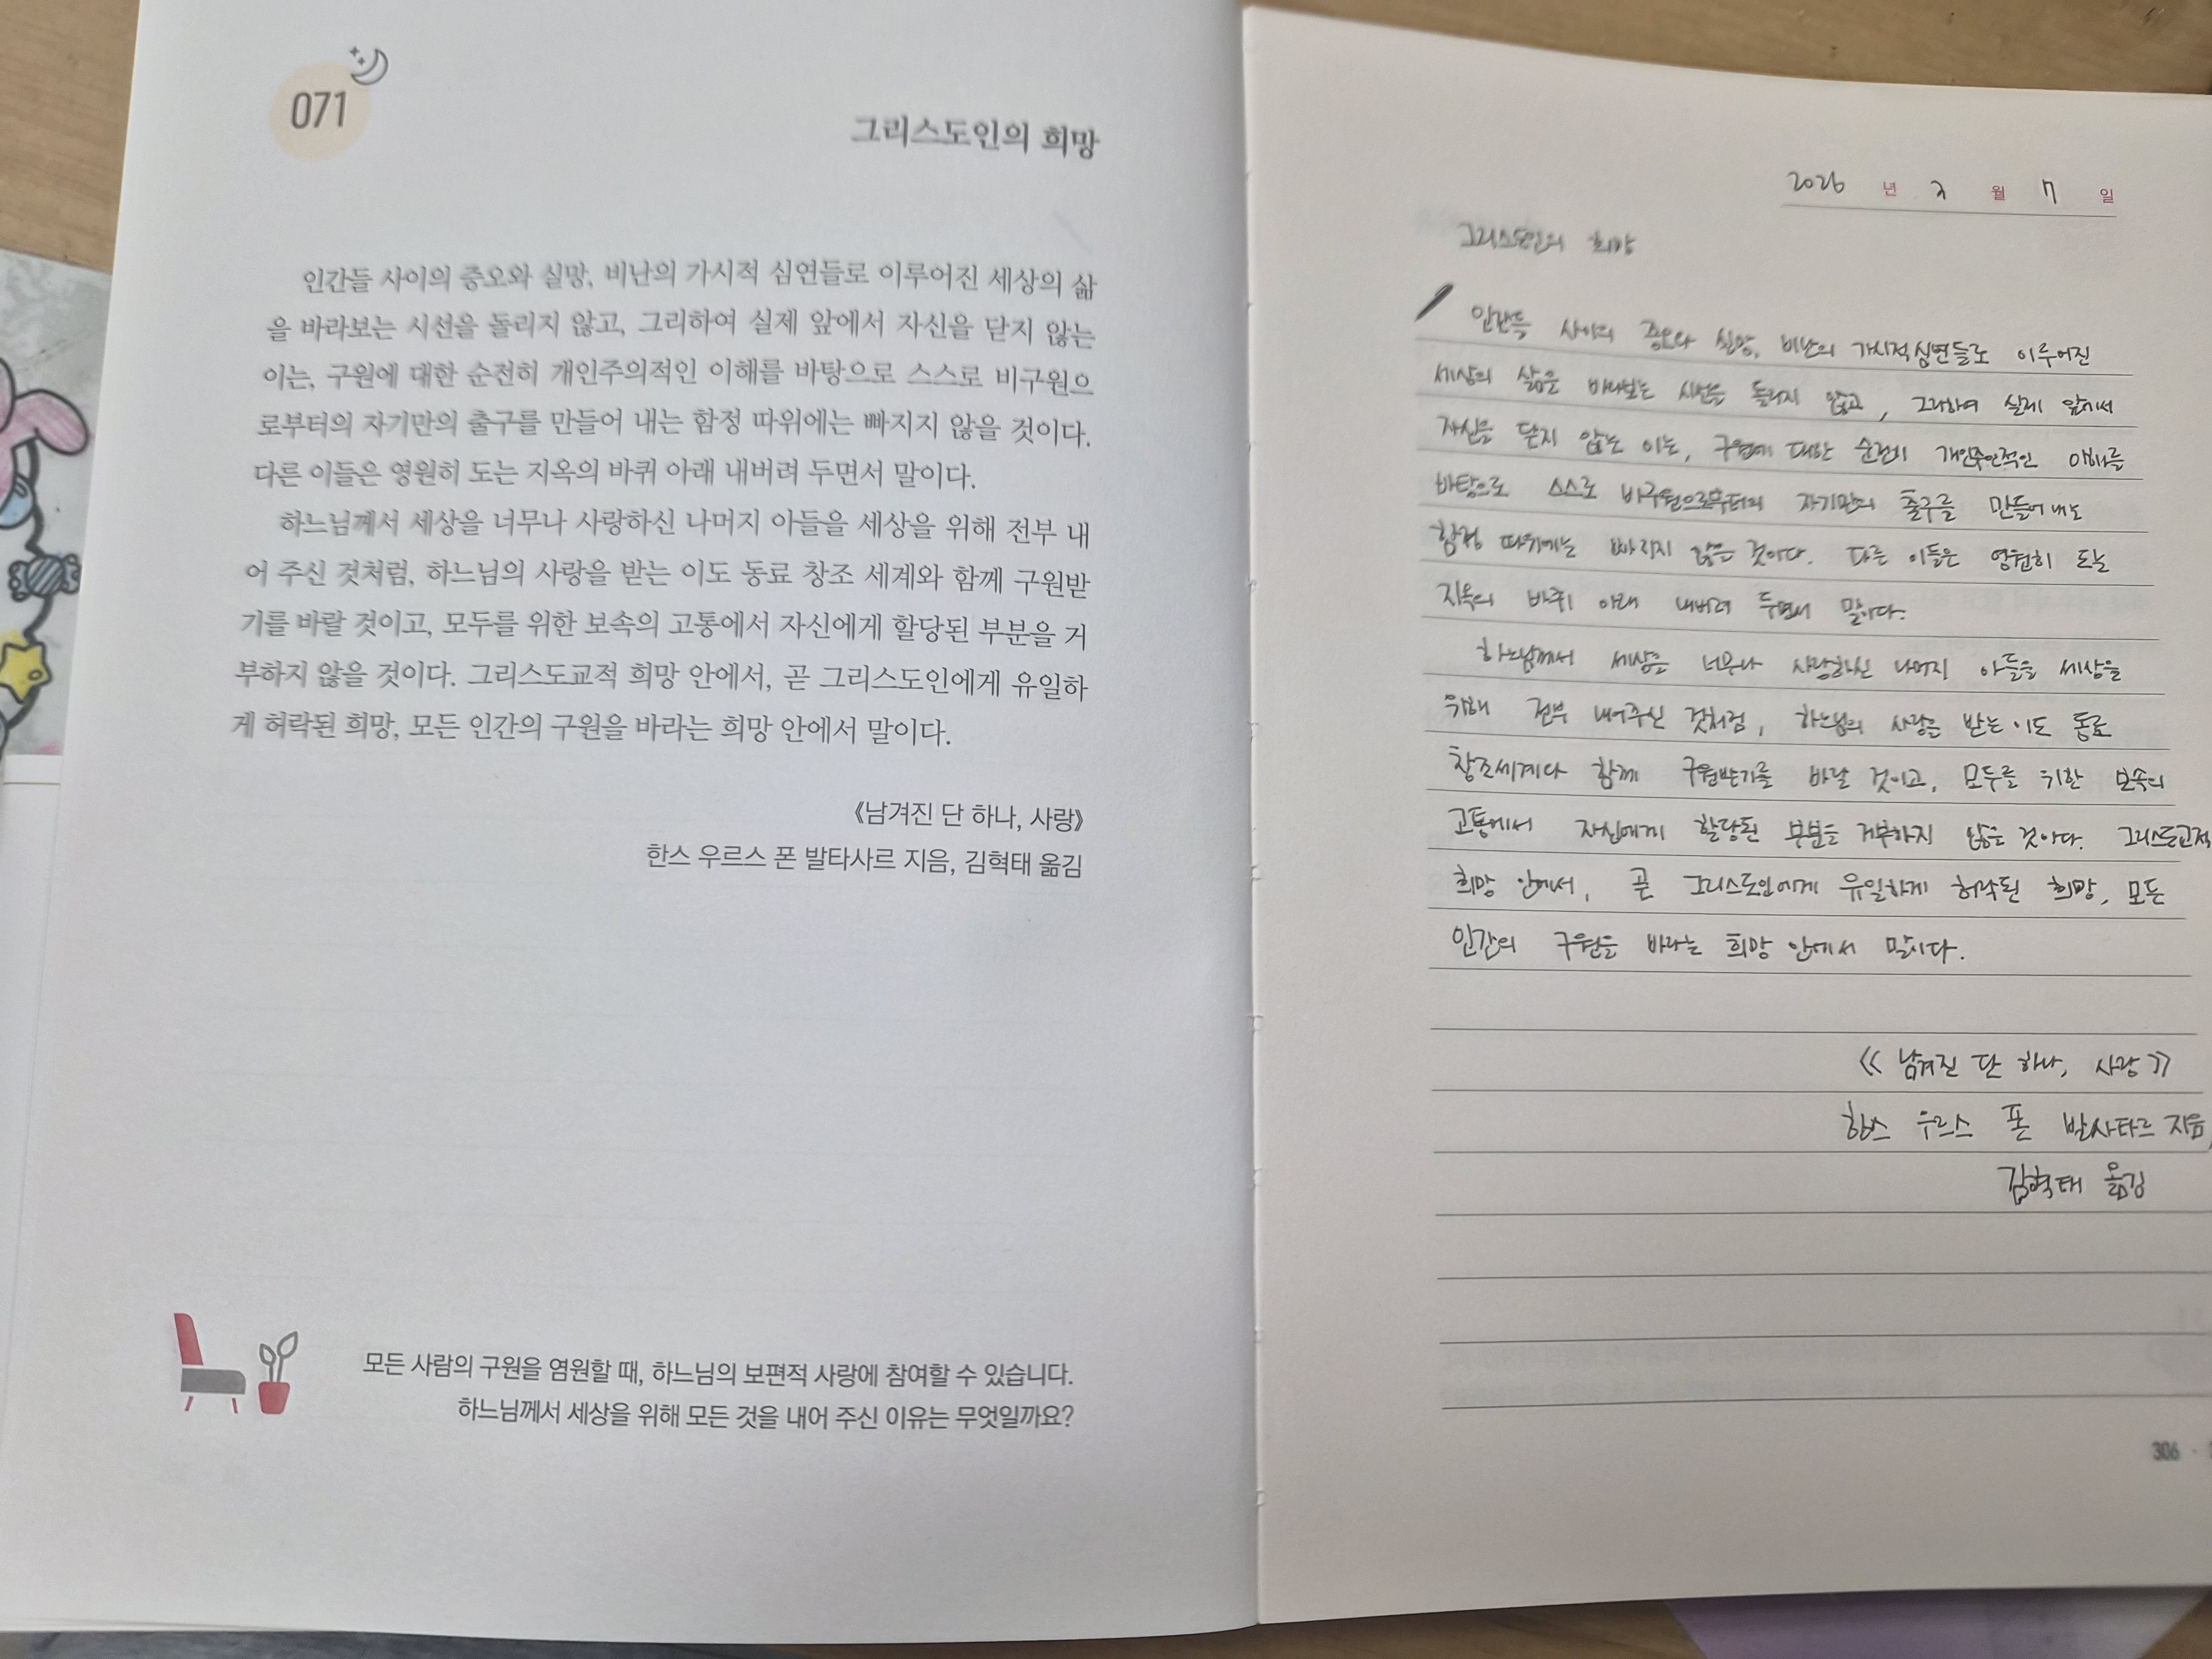 071
그리스도인의 희망
인간들 사이의 증오와 실망, 비난의 가시적 심연들로 이루어진 세상의 삶
을 바라보는 시선을 돌리지 않고, 그리하여 실제 앞에서 자신을 닫지 않는
이는, 구원에 대한 순전히 개인주의적인 이해를 바탕으로 스스로 비구원으
로부터의 자기만의 출구를 만들어 내는 함정 따위에는 빠지지 않을 것이다.
다른 이들은 영원히 도는 지옥의 바퀴 아래 내버려 두면서 말이다.
하느님께서 세상을 너무나 사랑하신 나머지 아들을 세상을 위해 전부 내
어 주신 것처럼, 하느님의 사랑을 받는 이도 동료 창조 세계와 함께 구원받
기를 바랄 것이고, 모두를 위한 보속의 고통에서 자신에게 할당된 부분을 거
부하지 않을 것이다. 그리스도교적 희망 안에서, 곧 그리스도인에게 유일하
게 허락된 희망, 모든 인간의 구원을 바라는 희망 안에서 말이다.
《남겨진 단 하나, 사랑》
한스 우르스 폰 발타사르 지음, 김혁태 옮김
모든 사람의 구원을 염원할 때, 하느님의 보편적 사랑에 참여할 수 있습니다.
하느님께서 세상을 위해 모든 것을 내어 주신 이유는 무엇일까요?
2026 년 2 월 7 일
그리스도인의 희망
인간들 사이의 증오와 실망, 비난의 가시적 심연들로 이루어진
세상의 삶을 바라보는 시선을 돌리지 않고, 그리하여 실제 앞에서
자신을 닫지 않는 이는, 구원에 대한 순전히 개인주의적인 이해를
바탕으로 스스로 비구원으로부터의 자기만의 출구를 만들어 내는
함정 따위에는 빠지지 않을 것이다. 다른 이들은 영원히 도는
지옥의 바퀴 아래 내버려 두면서 말이다.
하느님께서 세상을 너무나 사랑하신 나머지 아들을 세상을
위해 전부 내어주신 것처럼, 하느님의 사랑을 받는 이도 동료
창조세계와 함께 구원받기를 바랄 것이고, 모두를 위한 보속의
고통에서 자신에게 할당된 부분을 거부하지 않을 것이다. 그리스도교적
희망 안에서, 곧 그리스도인에게 유일하게 허락된 희망, 모든
인간의 구원을 바라는 희망 안에서 말이다.
《남겨진 단 하나, 사랑》
한스 우르스 폰 발사타르 지음,
김혁태 옮김
306